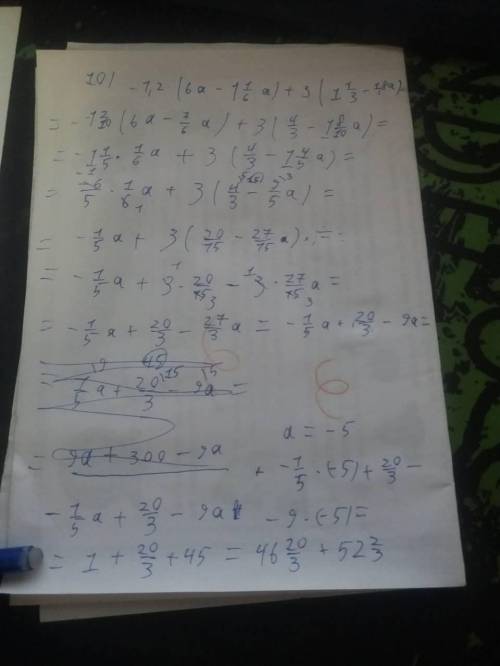 10) -1,2 (6a - 1 1/6 a) + 3 (1 1/3 - 1,8a)
= -1 2/10 (6a - 7/6 a) + 3 (4/3 - 1 8/10 a) =
= -1 1/5 · 1/6 a + 3 (4/3 - 1 4/5 a) =
= -6/5 · 1/6 a + 3 (4/3 - 9/5 a) =
= -1/5 a + 3 (20/15 - 27/15 a) =
= -1/5 a + 3 · 20/15 - 3 · 27/15 a =
= -1/5 a + 20/3 - 27/3 a = -1/5 a + 20/3 - 9a =
= 1/5 a + 20/3 - 9a =
a = -5
= 9a + 300 - 9a
-1/5 · (-5) + 20/3 -
-1/5 a + 20/3 - 9a
- 9 · (-5) =
= 1 + 20/3 + 45 = 46 20/3 + 52 2/3